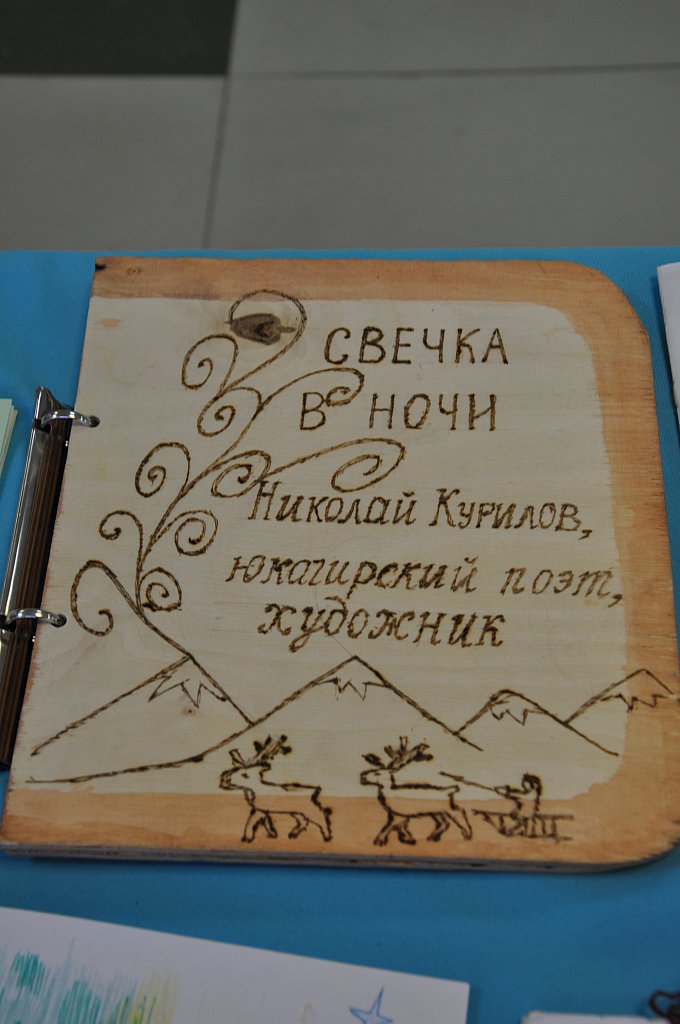 СВЕЧКА
В НОЧИ
Николай Курилов,
юкагирский поэт,
художник